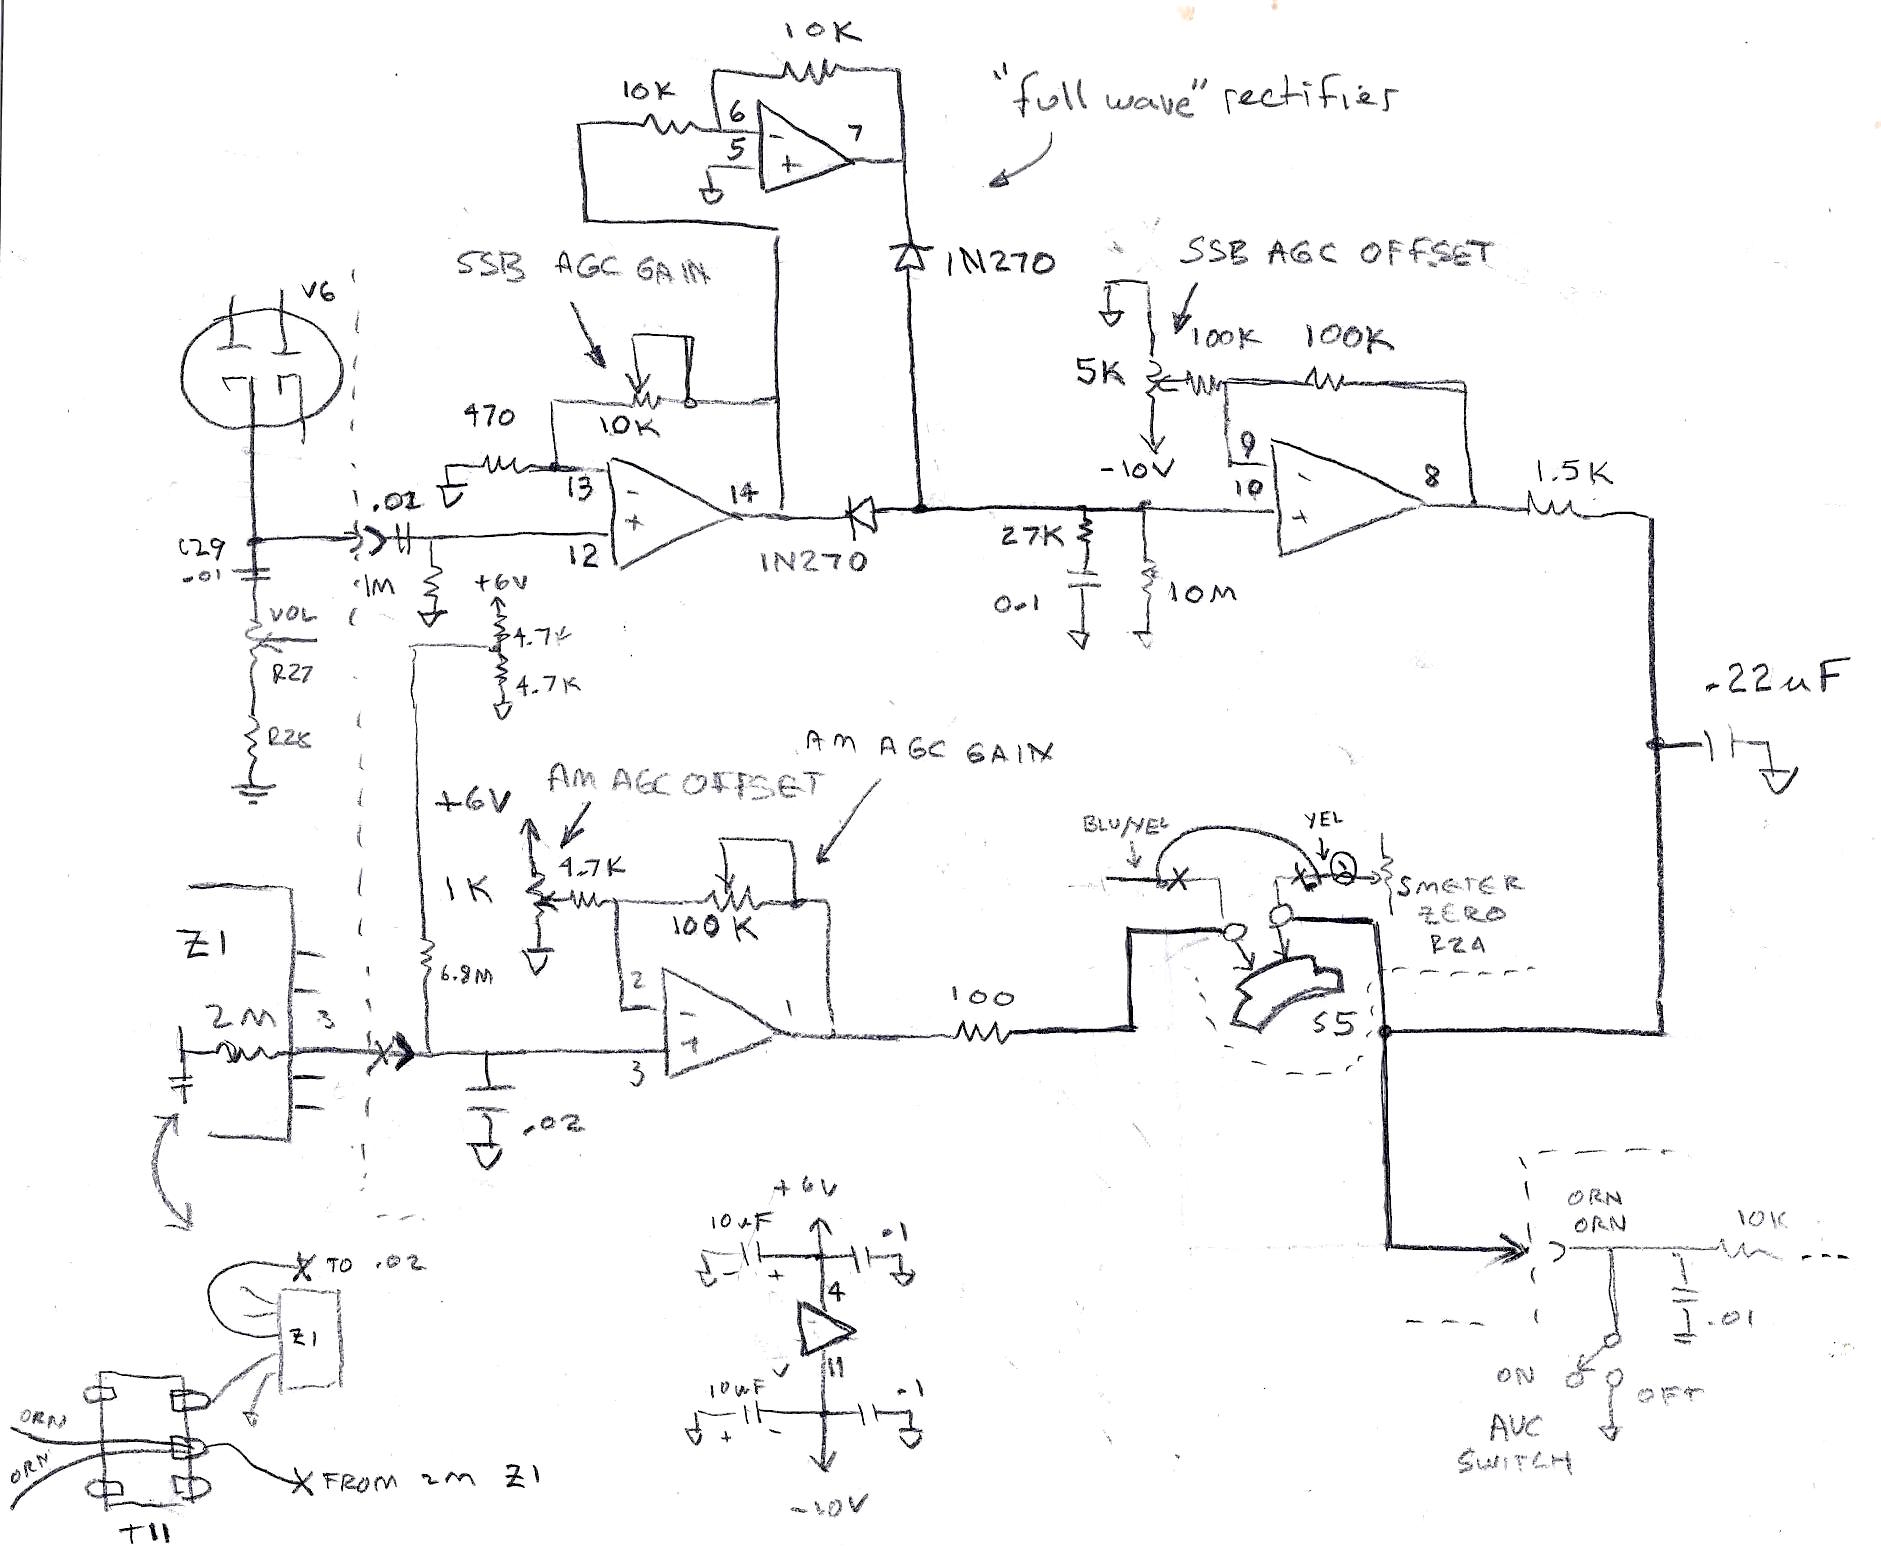 10K
"full wave" rectifies
10K
6
5
-
+
7
1N270
SSB AGC GAIN
SSB AGC OFFSET
V6
100K
100K
5K
-10V
470
10K
13
12
-
+
14
1N270
.01
1M
C29
.01
VOL
R27
+6V
4.7K
4.7K
27K
0.1
10M
9
10
-
+
8
1.5K
.22uF
AM AGC GAIN
AM AGC OFFSET
+6V
1K
4.7K
100K
BLU/YEL
YEL
S METER
ZERO
S5
Z1
2M
3
6.8M
2
3
-
+
1
100
.02
+6V
10uF
.1
- +
4
V
11
10uF
.1
+ -
-10V
ORN
ORN
10K
.01
ON
OFF
AVC
SWITCH
X TO .02
Z1
ORN
ORN
X FROM 2M Z1
T11